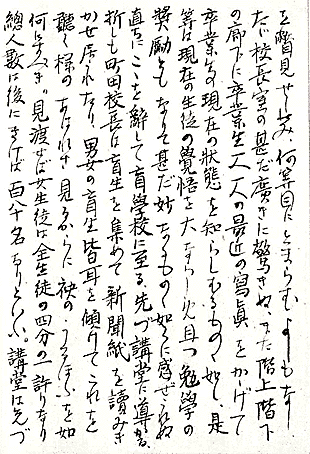 を瞥見せしのみ、何等目にとまらむよしもなし
たゞ校長室の甚だ廣きに驚きぬ、また階上階下
の廊下に卒業生一人一人の最近の寫眞をかげて
卒業生の現在の狀態を知らしむるものゝ如し、是
等は現在の生徒の覺悟を大ならしめ且つ勉學の
奬勵ともなりて甚だ妙なるものゝ如くに感ぜられぬ
直ちにこゝを辭して盲學校に至る、先づ講堂に導かる、
折しも町田校長は盲生を集めて新聞紙を讀みき
かせ居られたり、男女の盲生皆耳を傾けてこれを
聽く樣のあはれさ見るからに袂のうるほふを如
何にすべき。見渡せば女生徒は全生徒の四分の一許りなり
總人數は後にきけば百八十名なりといふ。講堂は先づ